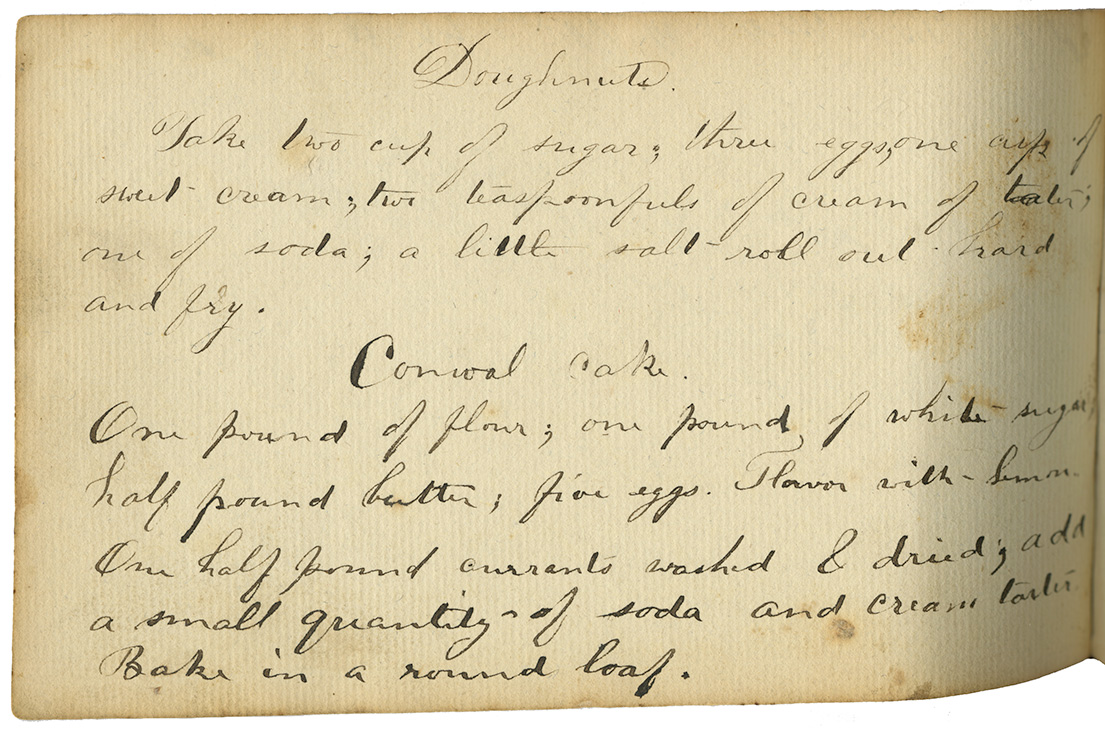 Doughnuts.
Take two cup of sugar; three eggs, one cup of
sweet cream; two teaspoonfuls of cream of tarter;
one of soda; a little salt roll out hard
and fry.
Conwal cake.
One pound of flour; one pound of white sugar,
half pound butter; five eggs. Flavor with Lemon.
One half pound currants washed & dried; add
a small quantity of soda and cream tarter
Bake in a round loaf.